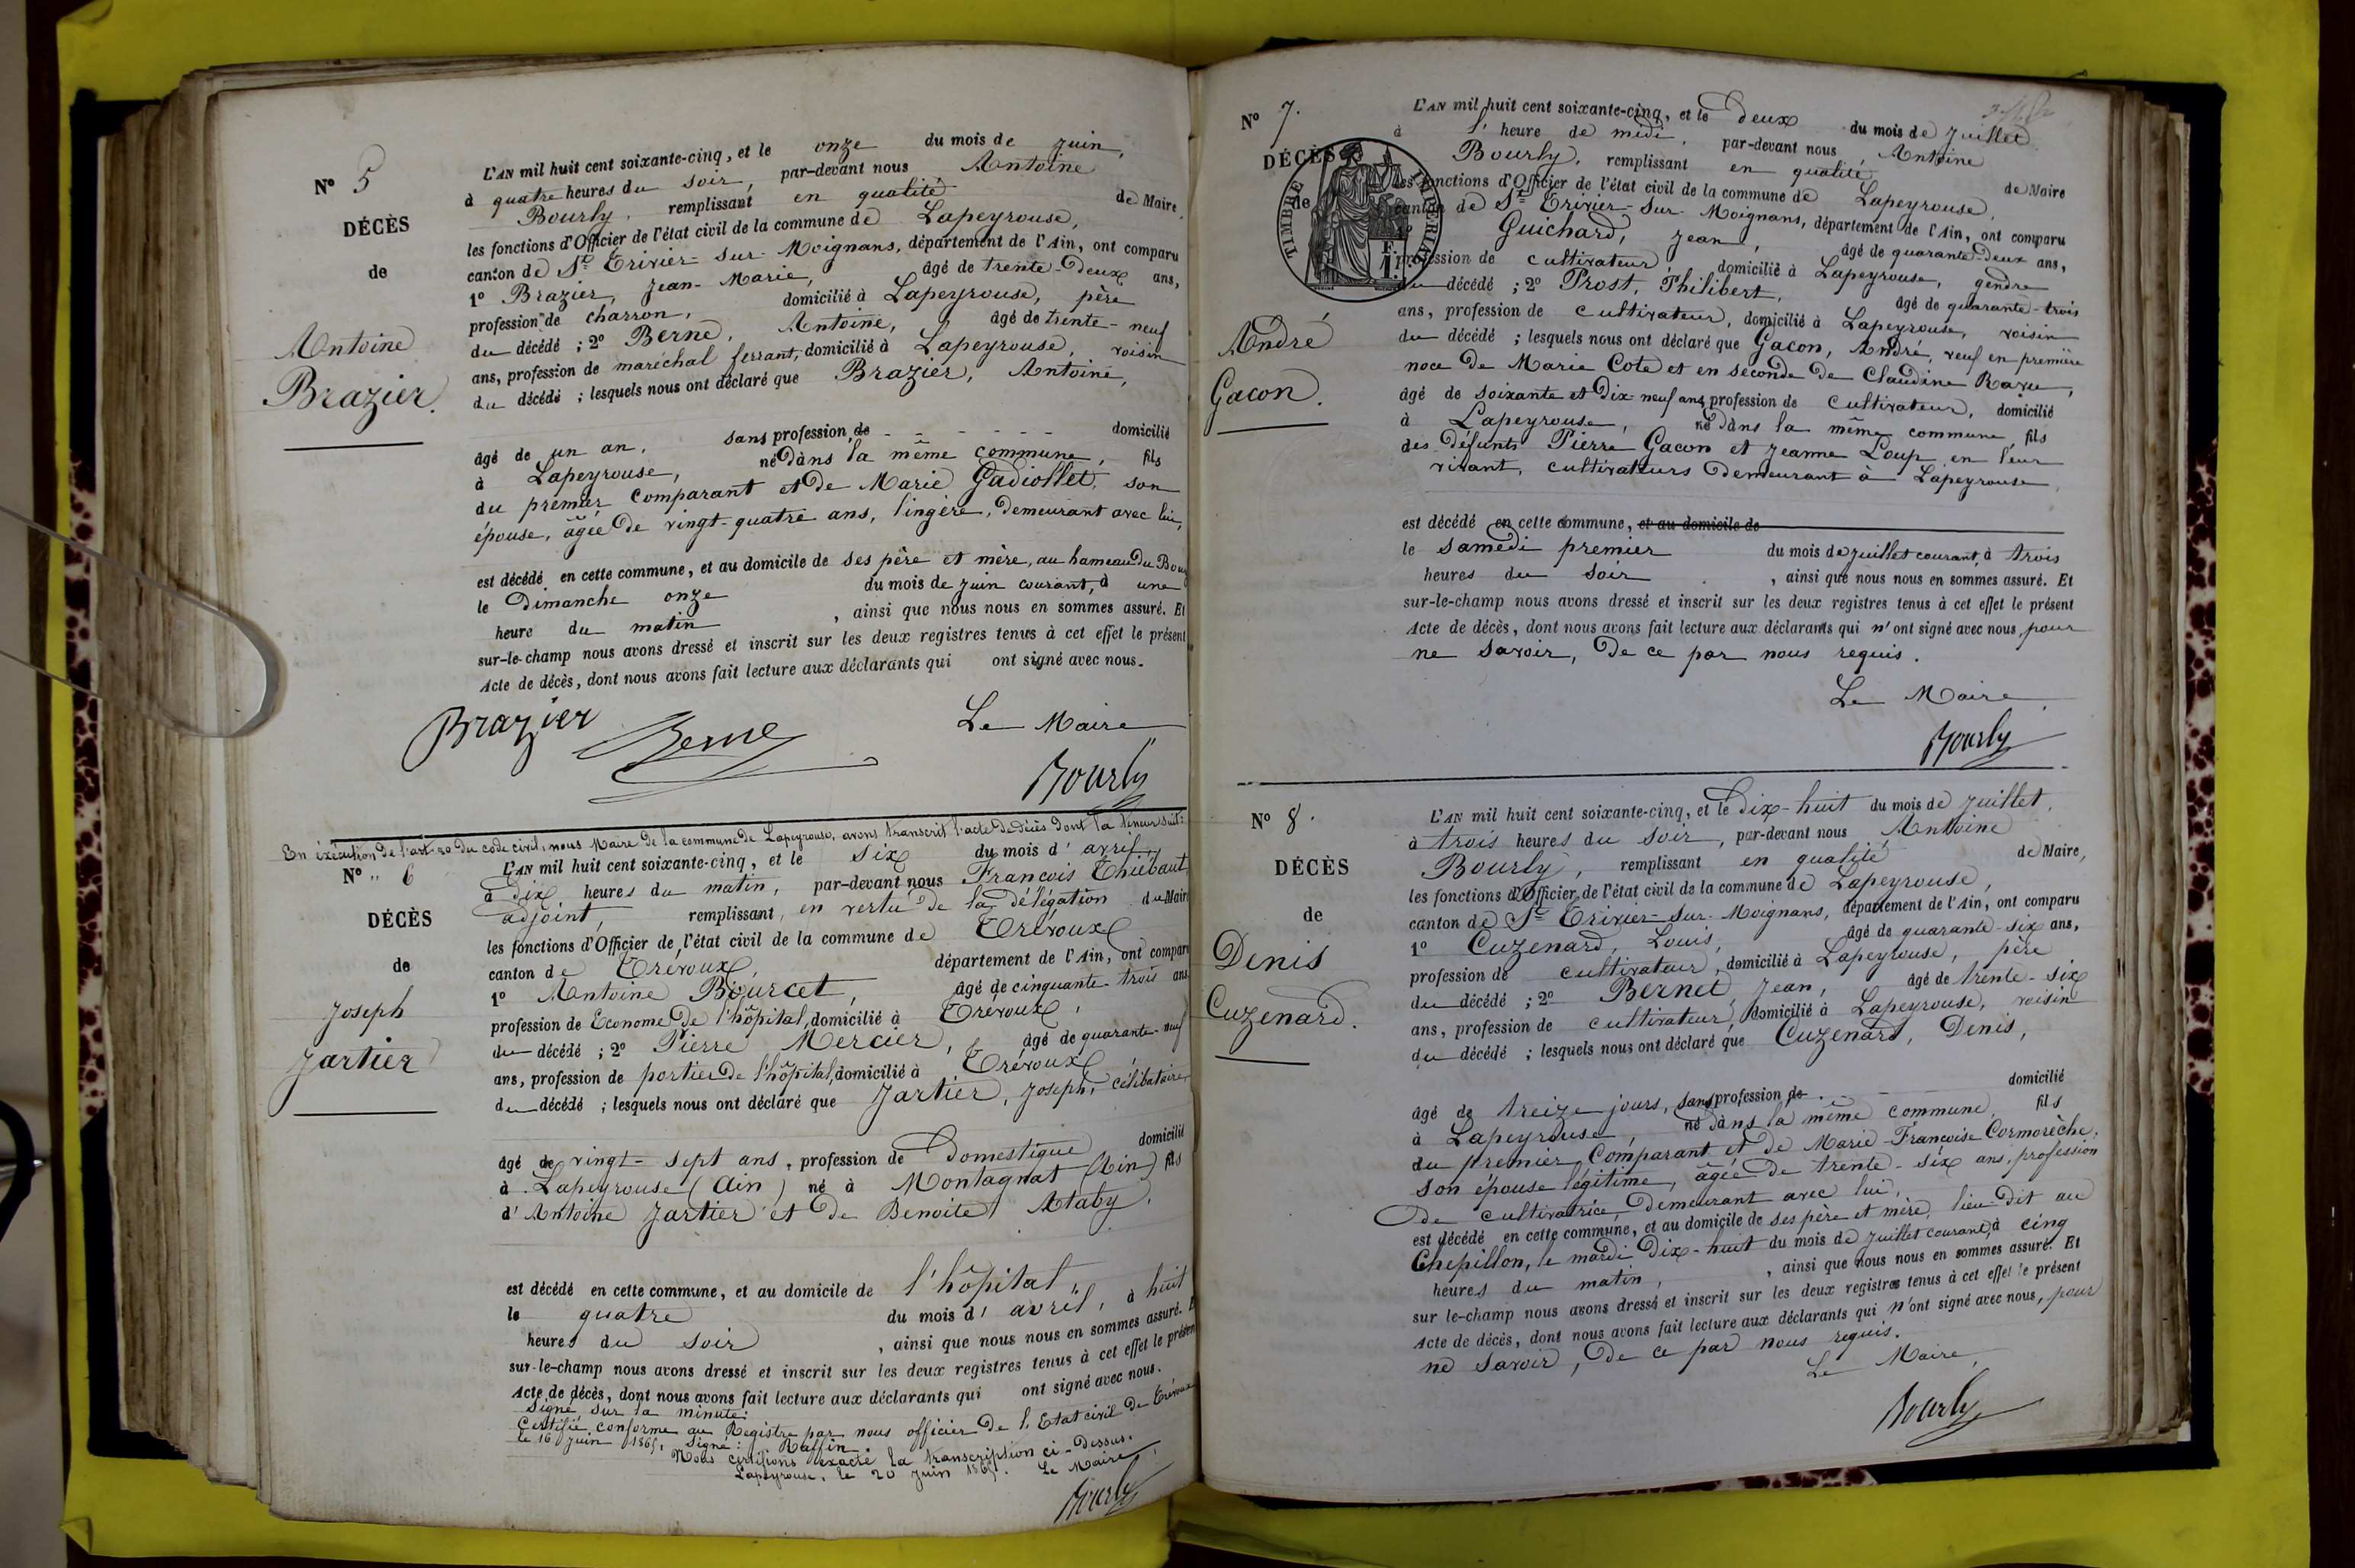 Nº 5
DÉCÈS
de
Antoine
Brazier.
L'AN mil huit cent soixante-cinq, et le onze du mois de juin,
à quatre heures du soir, par-devant nous Antoine
Bourly, remplissant en qualité de Maire,
les fonctions d'Officier de l'état civil de la commune de Lapeyrouse,
canton de St Trivier-sur-Moignans, département de l'Ain, ont comparu
1º Brazier, Jean-Marie, âgé de trente-deux ans,
profession de charron, domicilié à Lapeyrouse, père
du décédé ; 2º Berne, Antoine, âgé de trente-neuf
ans, profession de maréchal ferrant, domicilié à Lapeyrouse, voisin
du décédé ; lesquels nous ont déclaré que Brazier, Antoine,
âgé de un an, sans profession de - - - - - domicilié
à Lapeyrouse, né dans la même commune, fils
du premier comparant et de Marie Gadiollet, son
épouse, âgée de vingt-quatre ans, lingère, demeurant avec lui,
est décédé en cette commune, et au domicile de ses père et mère, au hameau du Bourg
le Dimanche onze du mois de juin courant, à une
heure du matin, ainsi que nous nous en sommes assuré. Et
sur-le-champ nous avons dressé et inscrit sur les deux registres tenus à cet effet le présent
Acte de décès, dont nous avons fait lecture aux déclarants qui ont signé avec nous.
Brazier Berne Le Maire
Bourly
En éxécution de l'art. 80 du code civil, nous Maire de la commune de Lapeyrouse, avons transcrit l'acte de décès dont la teneur suit :
Nº 6
DÉCÈS
de
Joseph
Jartier
L'AN mil huit cent soixante-cinq, et le six du mois d'avril,
à dix heures du matin, par-devant nous François Thiébaut,
adjoint, remplissant, en vertu de la délégation du Maire
les fonctions d'Officier de l'état civil de la commune de Trévoux
canton de Trévoux, département de l'Ain, ont comparu
1º Antoine Bourcet, âgé de cinquante-trois ans
profession de Econome de l'hôpital, domicilié à Trévoux,
du décédé ; 2º Pierre Mercier, âgé de quarante-neuf
ans, profession de portier de l'hôpital, domicilié à Trévoux,
du décédé ; lesquels nous ont déclaré que Jartier, Joseph, célibataire
âgé de vingt-sept ans, profession de Domestique domicilié
à Lapeyrouse (Ain) né à Montagnat (Ain) fils
d'Antoine Jartier et de Benoite Ataby.
est décédé en cette commune, et au domicile de l'hôpital,
le quatre du mois d'avril, à huit
heures du soir, ainsi que nous nous en sommes assuré. E
sur-le-champ nous avons dressé et inscrit sur les deux registres tenus à cet effet le présen
Acte de décès, dont nous avons fait lecture aux déclarants qui ont signé avec nous.
Signé sur la minute:
Certifié conforme au Registre par nous officier de l'Etat civil de Trévoux
le 16 juin 1865, Signé : Raffin.
Nous certifions exacte la transcription ci-dessus.
Lapeyrouse, le 20 juin 1865. Le Maire,
Bourly
Nº 7.
DÉCÈS
de
André
Gacon.
TIMBRE IMPÉRIAL
1 F.
L'AN mil huit cent soixante-cinq, et le deux du mois de juillet
à l'heure de midi, par-devant nous, Antoine
Bourly, remplissant en qualité de Maire
les fonctions d'Officier de l'état civil de la commune de Lapeyrouse,
canton de St Trivier-sur-Moignans, département de l'Ain, ont comparu
1º Guichard, Jean, âgé de quarante-deux ans,
profession de cultivateur, domicilié à Lapeyrouse, gendre
du décédé ; 2º Prost, Philibert, âgé de quarante-trois
ans, profession de cultivateur, domicilié à Lapeyrouse, voisin
du décédé ; lesquels nous ont déclaré que Gacon, André, veuf en première
noce de Marie Cote et en seconde de Claudine Ravu,
âgé de soixante et dix-neuf ans, profession de cultivateur, domicilié
à Lapeyrouse, né dans la même commune, fils
des défunts Pierre Gacon et Jeanne Loup en leur
vivant, cultivateurs demeurant à Lapeyrouse,
est décédé en cette commune, et au domicile de
le samedi premier du mois de juillet courant, à trois
heures du soir, ainsi que nous nous en sommes assuré. Et
sur-le-champ nous avons dressé et inscrit sur les deux registres tenus à cet effet le présent
Acte de décès, dont nous avons fait lecture aux déclarants qui n'ont signé avec nous, pour
ne savoir, de ce par nous requis.
Le Maire,
Bourly
Nº 8.
DÉCÈS
de
Denis
Cuzenard.
L'AN mil huit cent soixante-cinq, et le dix-huit du mois de juillet,
à trois heures du soir, par-devant nous, Antoine
Bourly, remplissant en qualité de Maire,
les fonctions d'Officier de l'état civil de la commune de Lapeyrouse,
canton de St Trivier-sur-Moignans, département de l'Ain, ont comparu
1º Cuzenard, Louis, âgé de quarante-six ans,
profession de cultivateur, domicilié à Lapeyrouse, père
du décédé ; 2º Bernet, Jean, âgé de trente-six
ans, profession de cultivateur, domicilié à Lapeyrouse, voisin
du décédé ; lesquels nous ont déclaré que Cuzenard, Denis,
âgé de treize jours, sans profession de - - - domicilié
à Lapeyrouse, né dans la même commune, fils
du premier comparant et de Marie-Françoise Cormorèche,
son épouse légitime, âgée de trente-six ans, profession
de cultivatrice, demeurant avec lui,
est décédé en cette commune, et au domicile de ses père et mère, lieu dit au
Chepillon, le mardi dix-huit du mois de juillet courant, à cinq
heures du matin, ainsi que nous nous en sommes assuré. Et
sur le-champ nous avons dressé et inscrit sur les deux registres tenus à cet effet le présent
Acte de décès, dont nous avons fait lecture aux déclarants qui n'ont signé avec nous, pour
ne savoir, de ce par nous requis.
Le Maire,
Bourly